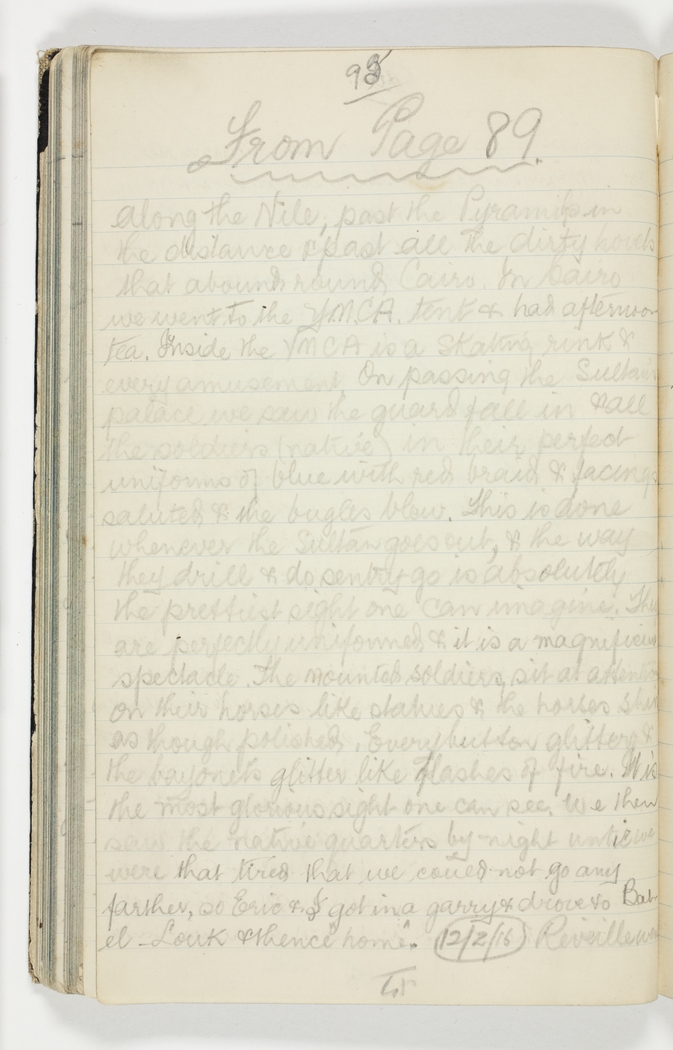 93
From Page 89.
along the Nile, past the Pyramids in
the distance & past all the dirty hovels
that abound round Cairo. In Cairo
we went to the Y.M.C.A. tent & had afternoon
tea. Inside the YMCA is a skating rink &
every amusement. On passing the Sultan's
palace we saw the guard fall in & all
the soldiers (native) in their perfect
uniforms of blue with red braid & facings
saluted & the bugles blew. This is done
whenever the Sultan goes out, & the way
they drill & do sentry-go is absolutely
the prettiest sight one can imagine. They
are perfectly uniformed & it is a magnificent
spectacle. The mounted soldiers sit at attention
on their horses like statues & the horses shine
as though polished. Every button glitters &
the bayonets glitter like flashes of fire. It is
the most glorious sight one can see. We then
saw the native quarters by night until we
were that tired that we could not go any
farther, so Eric & I got in a garry & drove to Bab-
el-Louk & thence home. (12/2/16) Reveille was